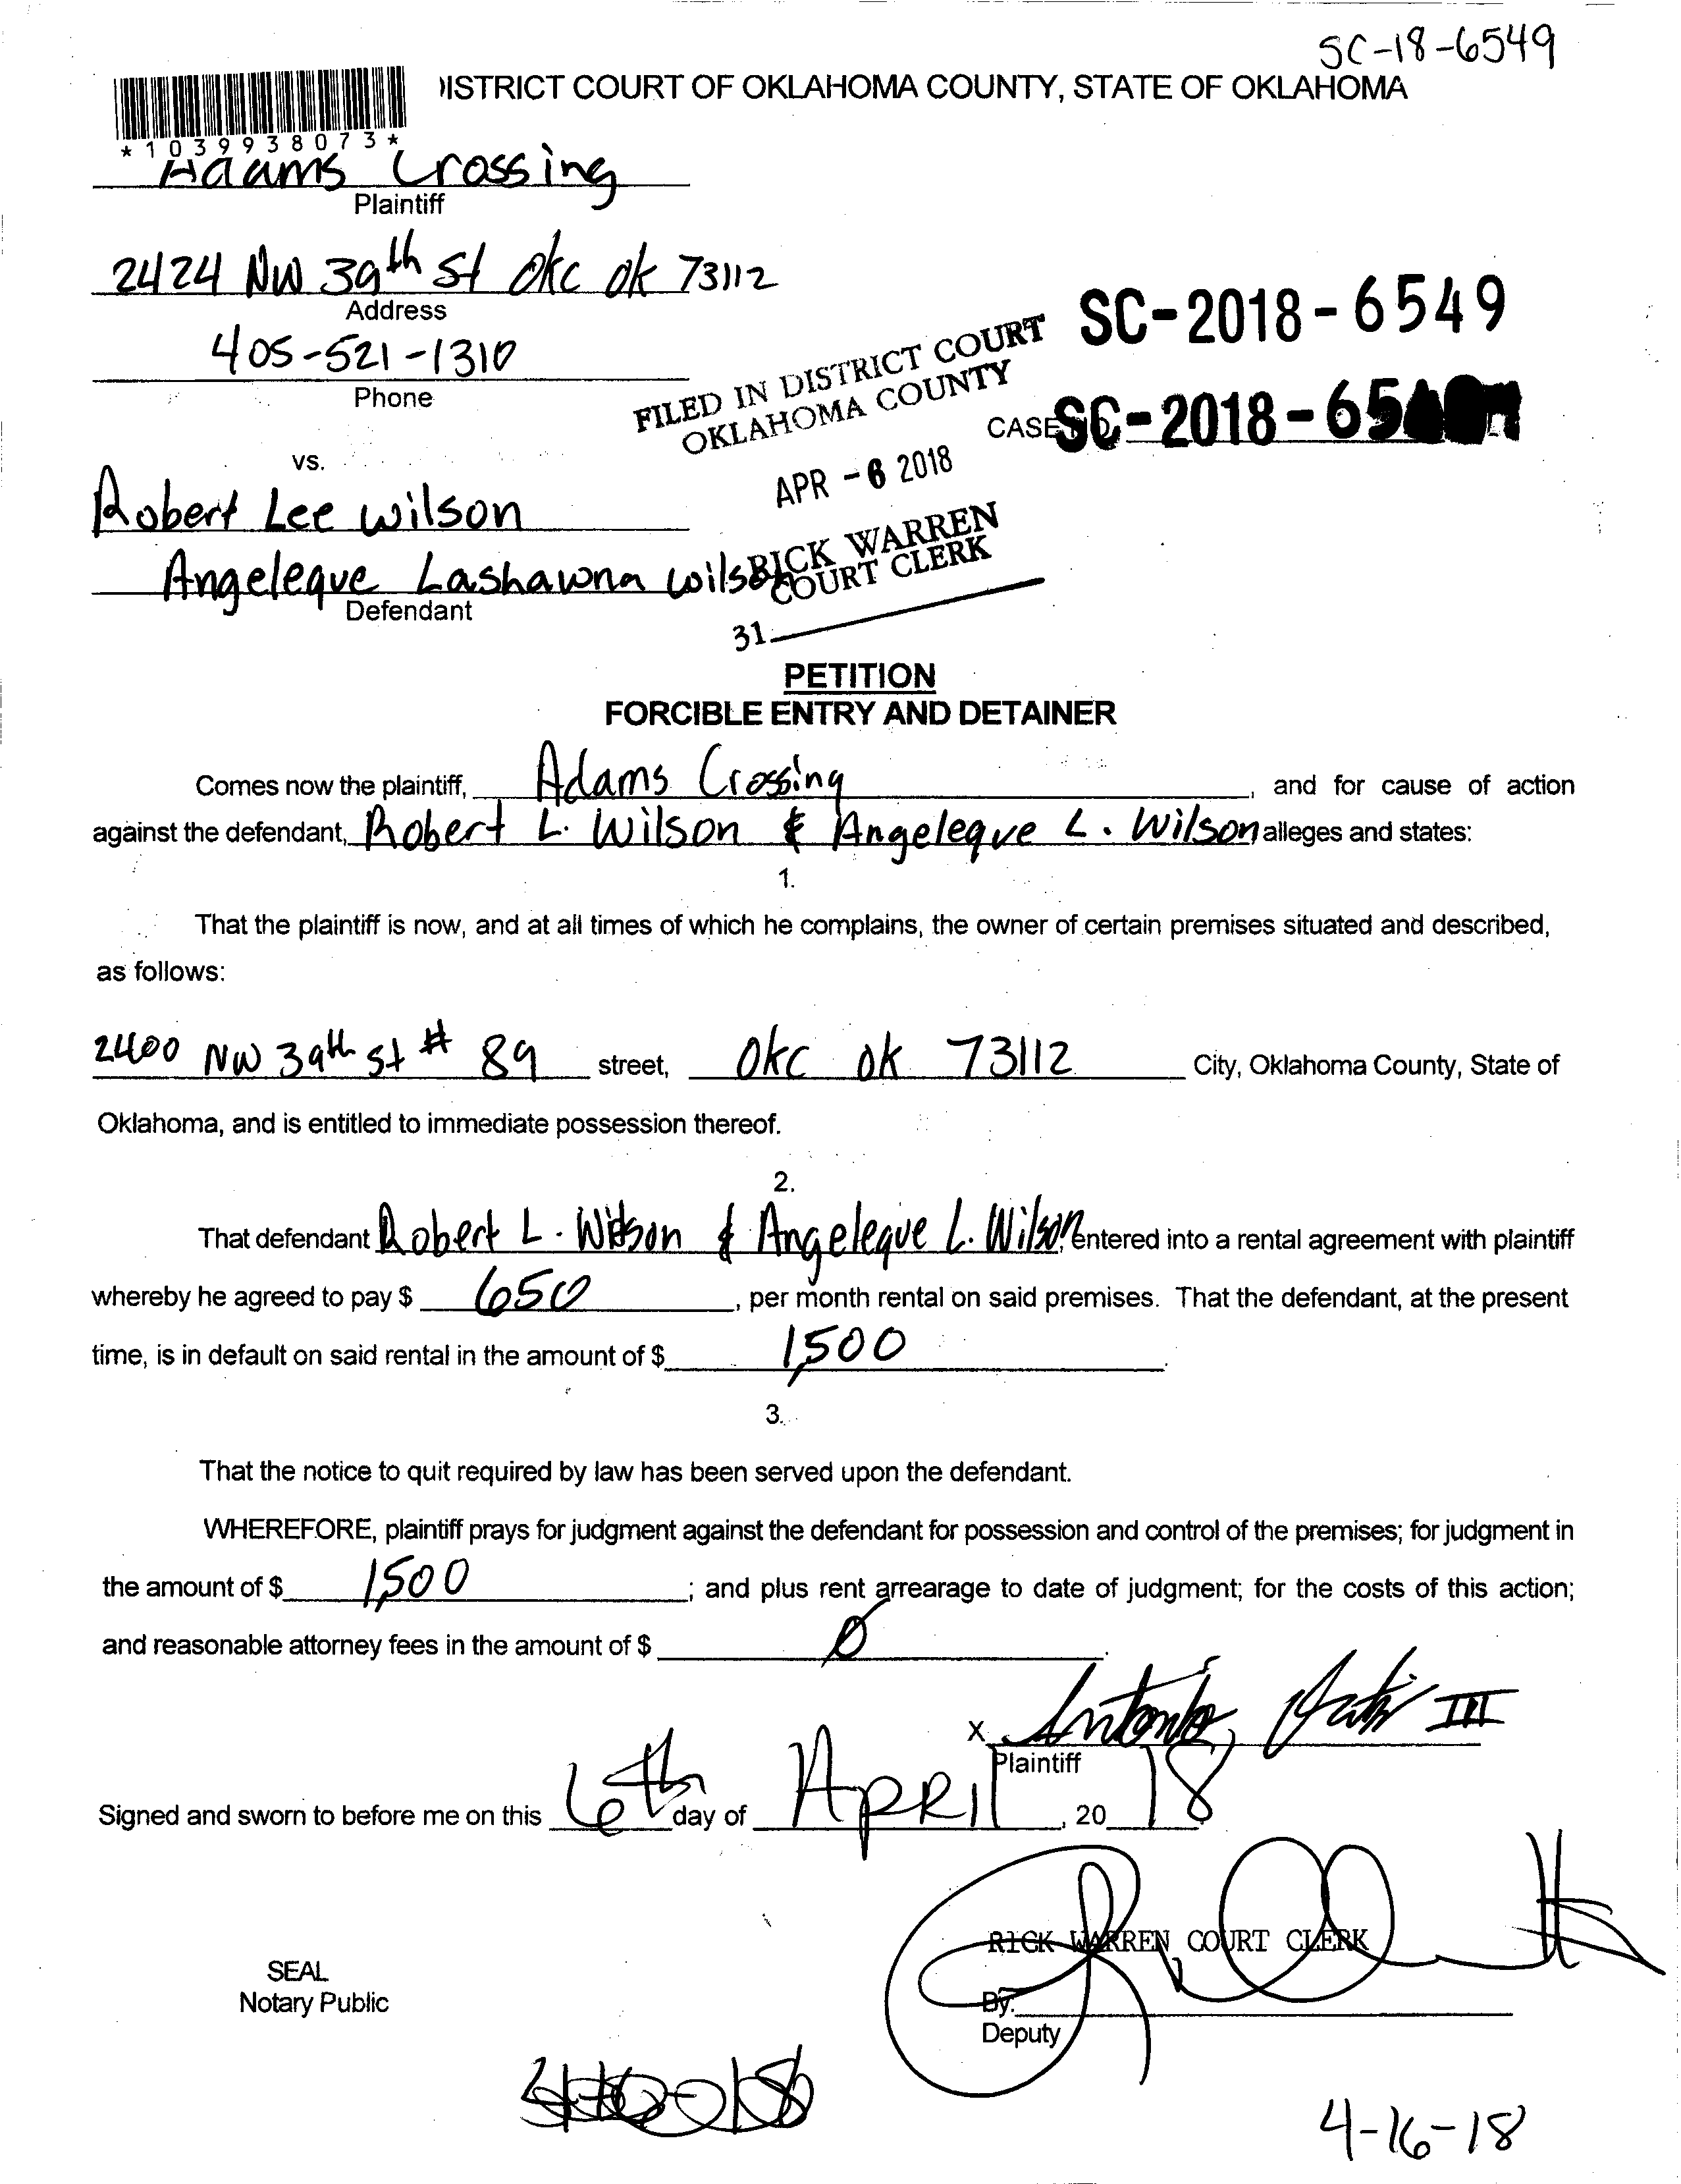 SC-18-6549
ISTRICT COURT OF OKLAHOMA COUNTY, STATE OF OKLAHOMA
*1039938073*
Adams Crossing
Plaintiff
2424 NW 39th St Okc Ok 73112
Address
405-521-1310
Phone
SC-2018-6549
FILED IN DISTRICT COURT
OKLAHOMA COUNTY
CASE SC-2018-65
APR -6 2018
vs.
Robert Lee Wilson
RICK WARREN
COURT CLERK
Angeleque Lashawna Wilson
Defendant
31
PETITION
FORCIBLE ENTRY AND DETAINER
Comes now the plaintiff, Adams Crossing, and for cause of action
against the defendant, Robert L. Wilson & Angeleque L. Wilson alleges and states:
1.
That the plaintiff is now, and at all times of which he complains, the owner of certain premises situated and described,
as follows:
2400 NW 39th St # 89 street, Okc Ok 73112 City, Oklahoma County, State of
Oklahoma, and is entitled to immediate possession thereof.
2.
That defendant Robert L. Wilson & Angeleque L. Wilson, entered into a rental agreement with plaintiff
whereby he agreed to pay $ 650, per month rental on said premises. That the defendant, at the present
time, is in default on said rental in the amount of $ 1,500.
3.
That the notice to quit required by law has been served upon the defendant.
WHEREFORE, plaintiff prays for judgment against the defendant for possession and control of the premises; for judgment in
the amount of $ 1,500; and plus rent arrearage to date of judgment; for the costs of this action;
and reasonable attorney fees in the amount of $ Ø.
X Antonio III
Plaintiff
Signed and sworn to before me on this 6th day of April, 2018.
RICK WARREN COURT CLERK
SEAL
Notary Public
By:
Deputy
4-16-18